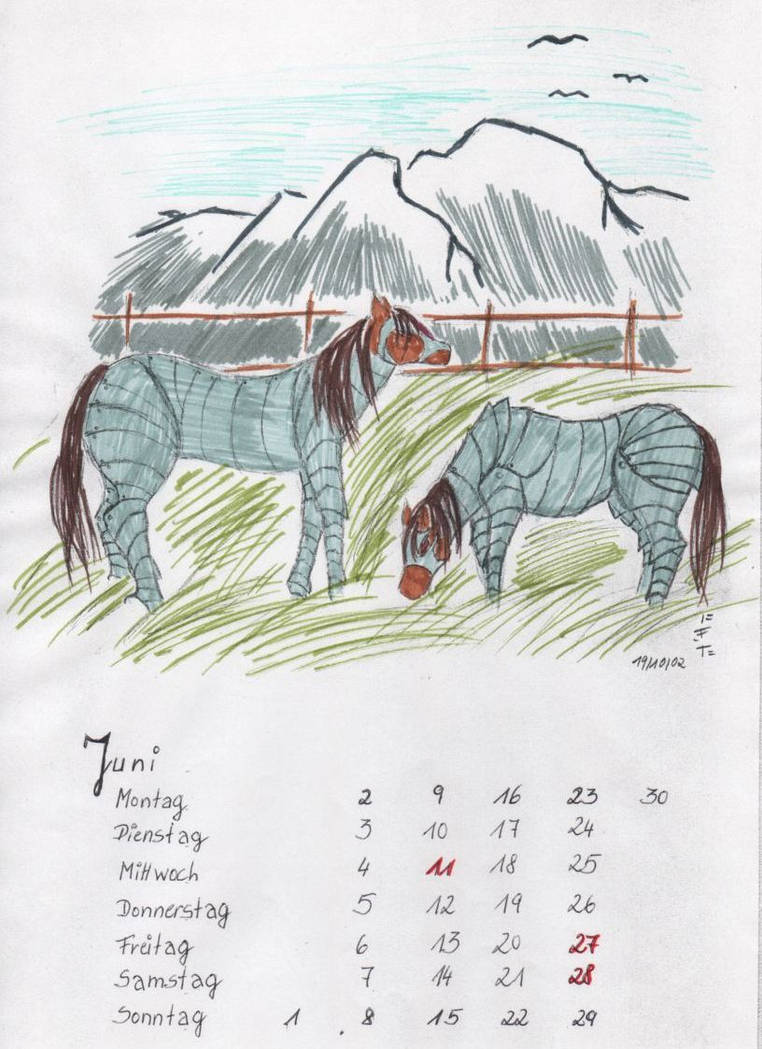 19/10/02
Juni
Montag 2 9 16 23 30
Dienstag 3 10 17 24
Mittwoch 4 11 18 25
Donnerstag 5 12 19 26
Freitag 6 13 20 27
Samstag 7 14 21 28
Sonntag 1 8 15 22 29